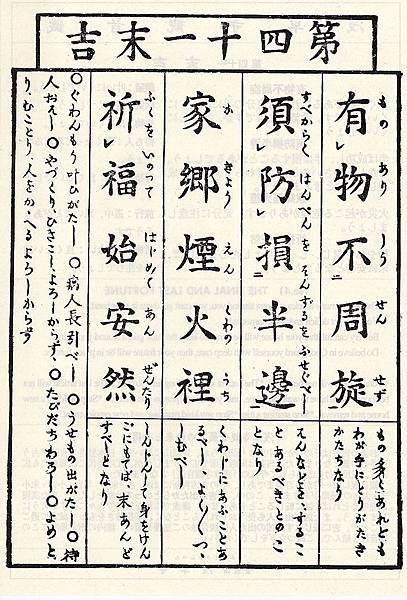 第四十一末吉
もの あり しう せん せず
有レ物不二周旋一
すべからく はんぺんを そんずるをふせぐべし
須レ防レ損二半邊一
か きよう えん くわの うち
家郷煙火裡
ふくを いのつて はじめて あん ぜんたり
祈レ福始安然
もの多くあれども
わが手にとりがたき
かたちなり
そんなどを、するこ
とあるべきとのこ
となり
くわじにあふことあ
るべし、よく〱つゝ
むべし
しんじんして身をけん
ごにもてば、末あんど
すべしとなり
○ぐわんもう叶ひがたし○病人長引べし○うせもの出がたし○待
人おそし○やづくりひきこしよろしからず○たびだちわろし○よめと
り、むことり、人をかゝへるよろしからず